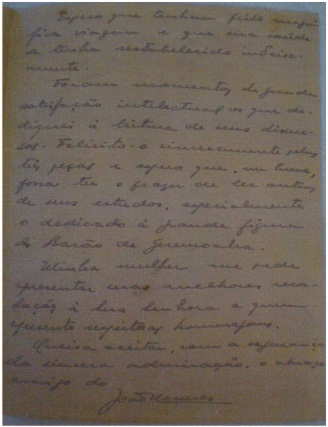 Espero que tenham feito magní-
fica viagem e que sua saúde
se tenha restabelecido inteira-
mente.
Foram momentos de grande
satisfação intelectual os que de-
diquei à leitura de seus discur-
sos. Felicito-o sinceramente pelas
três peças e espero que, em breve,
possa ter o prazer de ler outros
de seus estudos, especialmente
o dedicado à grande figura
do Barão de
Minha mulher me pede
apresentar suas melhores
à sua senhora a quem
apresento respeitosas homenagens.
Queira aceitar, com a segurança
da sincera admiração, o abraço
amigo do
João